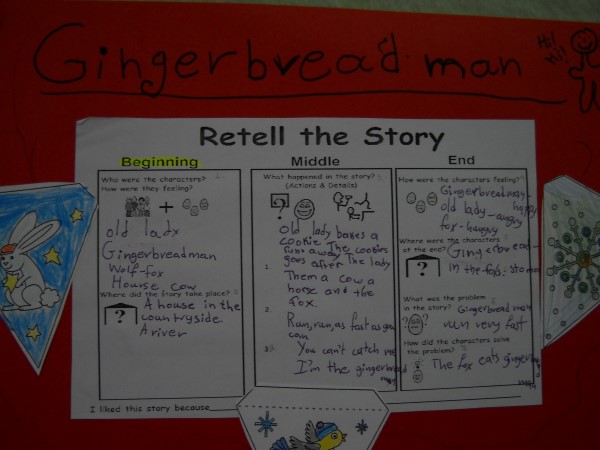 Gingerbread man
Hi!
Hi!
Retell the Story
Beginning
Who were the characters?
How were they feeling?
old lady
Gingerbreadman
Wolf-fox
Hourse cow
Where did the story take place?
A house in the
countryside
A river
I liked this story because
Middle
What happened in the story?
(Actions & Details)
Old lady bakes a
cookie The cookies
runs away
goes after The lady
1.
Them a cow a
horse and the
fox.
2.
Run, run, as fast as you
can
3.
You can't catch me
I'm the gingerbread
man
End
How were the characters feeling?
Gingerbreadman-
happy
old lady-angry
fox-hungry
Where were the characters
at the end?
Gingerbread-
in the fox's stomach
What was the problem
in the story?
Gingerbread man
run very fast
How did the characters solve
the problem?
The fox eats gingerbread
man